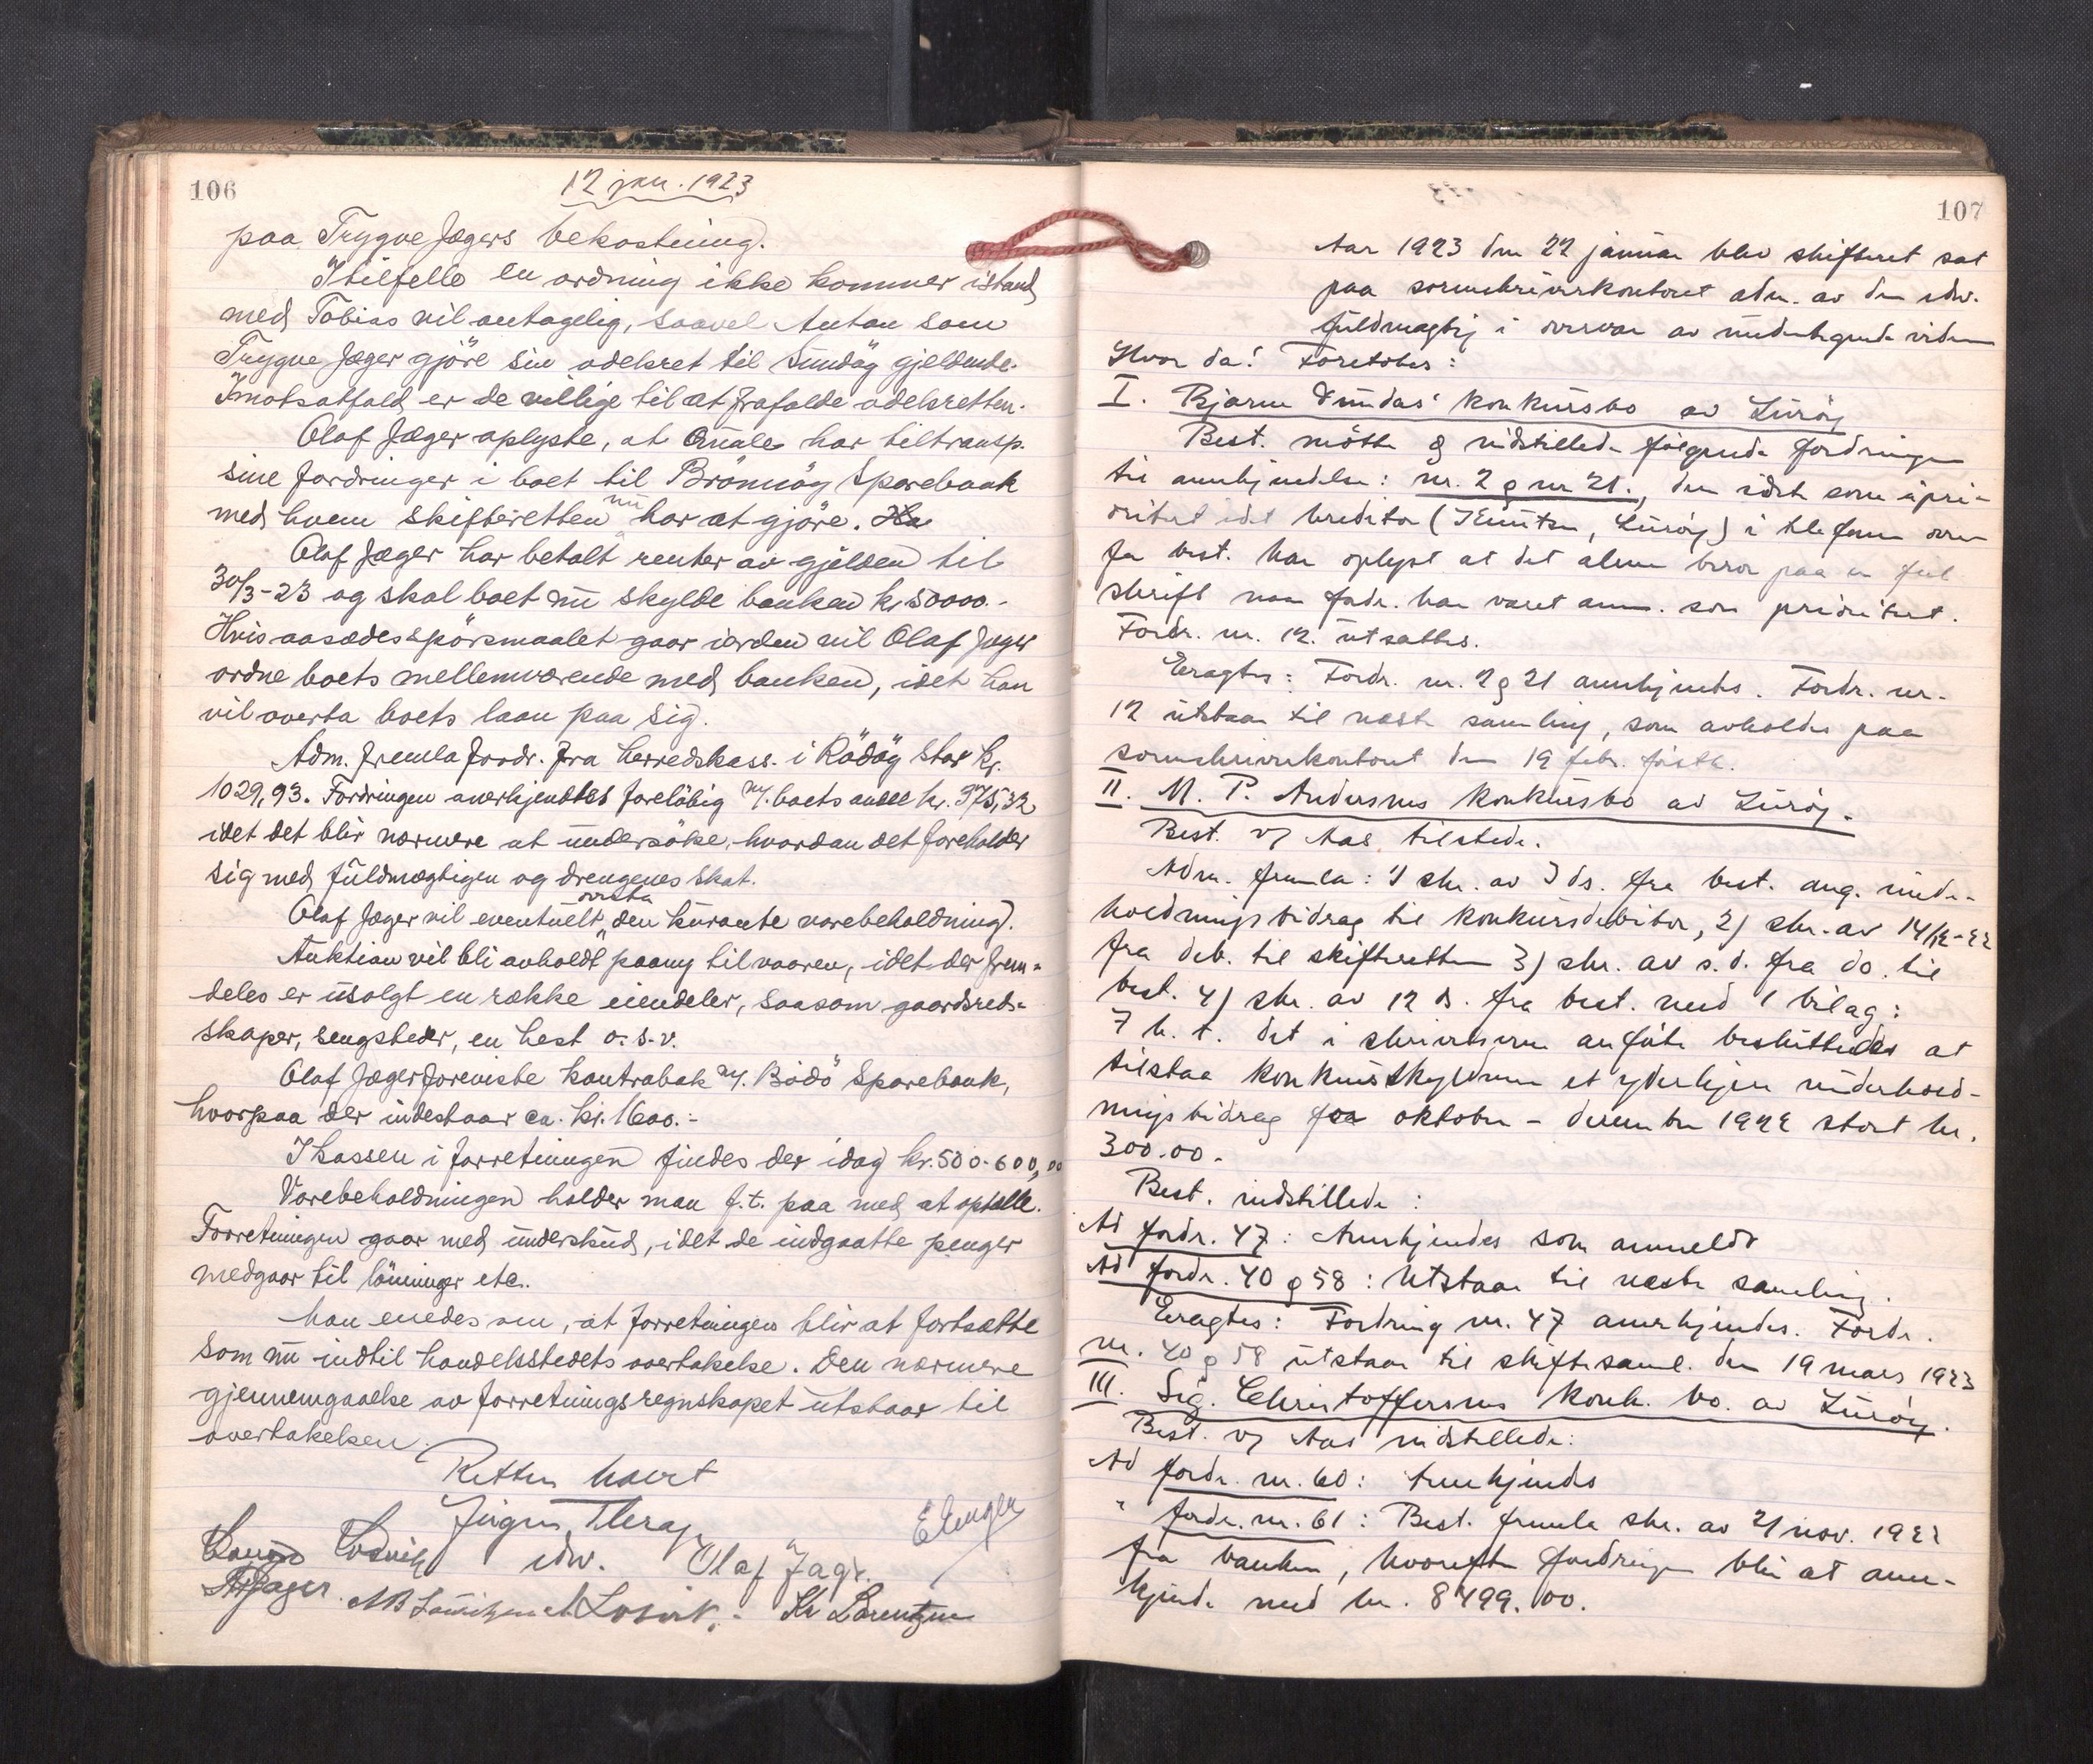 106
12 jan. 1923
paa Trygve Jægers bekostning.
I tilfelle en ordning ikke kommer istand
med Tobias vil antagelig, saavel Anton som
Trygve Jæger gjöre sin odelsret til Sundöy gjeldende.
Imotsatfald er de villige til at frafalde odelsretten.
Olaf Jæger oplyste, at Qvale har tiltransp.
sine fordringer i boet til Brönnöy Sparebank
med hvem skifteretten nu har at gjöre.
Olaf Jæger har betalt renter av gjelden til
30/3-23 og skal boet nu skylde banken kr 50000.-
Hvis aasædesspörsmaalet gaar iorden vil Olaf Jæger
ordne boets mellemværende med banken, idet han
vil overta boets laan paa sig.
Adm. fremla fordr. fra herredskass. i Rödöy stor kr.
1029,93. Fordringen anerkjendtes forelöbig m/. boets andel kr. 375,32
idet det blir nærmere at undersöke, hvordan det foreholder
sig med fuldmægtigen og drengenes skat.
Olaf Jæger vil eventuelt overta den kurante varebeholdning.
Auktion vil bli avholdt paany til vaaren, idet der frem-
deles er usolgt en række eiendeler, saasom gaardsreds-
skaper, sengsteder, en hest o. s. v.
Olaf Jæger foreviste kontrabok m/. Bodö Sparebank,
hvorpaa der indestaar ca. kr. 1600.-
I kassen i forretningen findes der idag kr. 500-600,00
Varebeholdningen holder man f.t. paa med at optælle.
Forretningen gaar med underskud, idet de indgaatte penger
medgaar til lönninger etc.
Man enedes om, at forretningen blir at fortsætte
som nu indtil handelsstedets overtakelse. Den nærmere
gjennemgaaelse av forretningsregnskapet utstaar til
overtakelsen.
Retten hævet
Jörgen
edv. Olaf Jæger.
Kr Lorentzen
107
Aar 1923 den 22 januar blev skifteret sat
paa sorenskriverkontoret adm. av den edsv.
fuldmægtig i overvær av undertegnede vidner
Hvor da! Foretokes:
I. Bjarne Dundas' konkursbo av Luröy
Best. mötte og indstillede fölgende fordringer
til anerkjendelse: nr. 2 og nr 21., den sidste som upri-
oritert idet kreditor (Knutsen, Luröy) i telefonen over-
for best. har oplyst at det alene beror paa en feil
skrift naar fordr. har været anm. som prioritert.
Fordr. nr. 12. utsattes.
Eragtes: Fordr. nr. 2 og 21 anerkjendes. Fordr. nr.
12 utstaar til næste samling, som avholdes paa
sorenskriverkontoret den 19 febr. förstk.
II. M. P. Andersens konkursbo av Luröy.
Best. v/ Aas tilstede.
Adm. fremla: 1) skr. av 3 ds. fra best. ang. under-
holdningsbidrag til konkursdebitor, 2) skr. av 14/12-22
fra deb. til skifteretten 3) skr. av s.d. fra do. til
best. 4) skr. av 12 ds. fra best. med 1 bilag:
I h. t. det i skrivelserne anförte besluttedes at
tilstaa konkursskyldneren et yderligere underhold-
ningsbidrag for oktober - december 1922 stort kr.
300.00.
Best. indstillede:
Ad fordr. 47: Anerkjendes som anmeldt
Ad fordr. 40 og 58: Utstaar til næste samling.
Eragtes: Fordring nr. 47 anerkjendes. Fordr.
nr. 40 og 58 utstaar til skiftesaml. den 19 mars 1923
III. Sig. Christoffersens konk. bo. av Luröy.
Best. v/ Aas indstillede:
Ad fordr. nr. 60: Anerkjendes
" fordr. nr. 61: Best. fremla skr. av 21 nov. 1922
fra banken, hvorefter fordringen blir at aner-
kjende med kr. 8499.00.